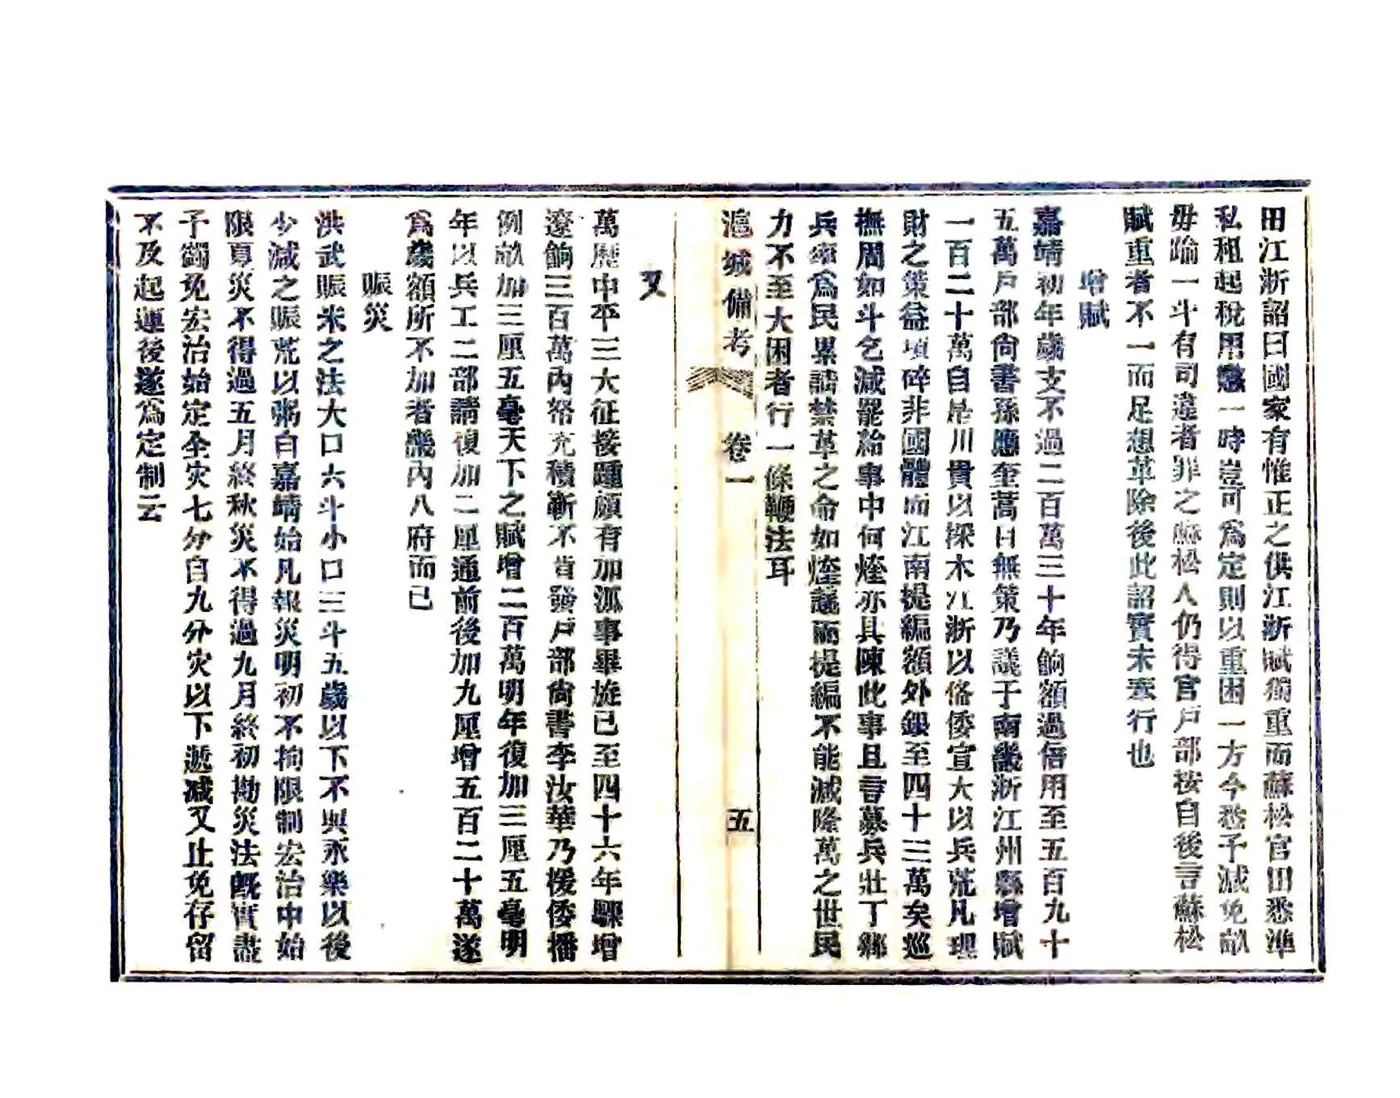 田江浙詔曰國家有惟正之供江浙賦獨重而蘇松官田悉準
私租起稅用懲一時豈可爲定則以重困一方今悉予減免畝
毋踰一斗有司違者罪之蘇松人仍得官戶部按自後言蘇松
賦重者不一而足想革除後此詔實未奉行也
增賦
嘉靖初年歲支不過二百萬三十年餉額過倍用至五百九十
五萬戶部尙書孫應奎蒿目無策乃議于南畿浙江州縣增賦
一百二十萬自是川貴以採木江浙以備倭宣大以兵荒凡理
財之策益瑣碎非國體而江南提編額外銀至四十三萬矣巡
撫周如斗乞減罷給事中何煃亦具陳此事且言募兵壯丁鄉
兵率爲民累請禁革之命如煃議而提編不能減隆萬之世民
力不至大困者行一條鞭法耳
滬城備考 卷一 五
又
萬歷中年三大征接踵頗有加派事畢旋已至四十六年驟增
遼餉三百萬內帑充積靳不肯發戶部尙書李汝華乃援倭播
例畝加三厘五毫天下之賦增二百萬明年復加三厘五毫明
年以兵工二部請復加二厘通前後加九厘增五百二十萬遂
爲歲額所不加者畿內八府而已
賑災
洪武賑米之法大口六斗小口三斗五歲以下不與永樂以後
少減之賑荒以粥自嘉靖始凡報災明初不拘限制宏治中始
限夏災不得過五月終秋災不得過九月終初勘災法旣實盡
予蠲免宏治始定全灾七分自九分灾以下遞减又止免存留
不及起運後遂爲定制云